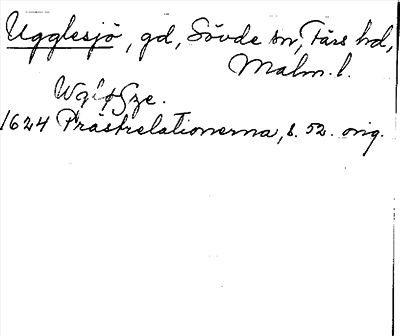 Ugglesjö, gd, Sövde sn, Färs hd,
Malm. l.
1624 Prästrelationerna, s. 52. orig.